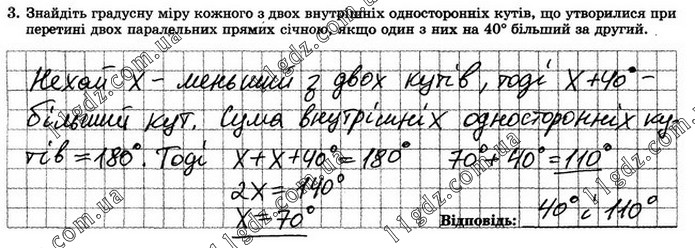 3. Знайдіть градусну міру кожного з двох внутрішніх односторонніх кутів, що утворилися при
перетині двох паралельних прямих січною, якщо один з них на 40° більший за другий.
Нехай x - менший з двох кутів, тоді x+40° -
більший кут. Сума внутрішніх односторонніх ку-
тів = 180°. Тоді x+x+40° = 180° 70°+40° = 110°
2x = 140°
x = 70°
Відповідь: 40° і 110°
11gdz.com.ua